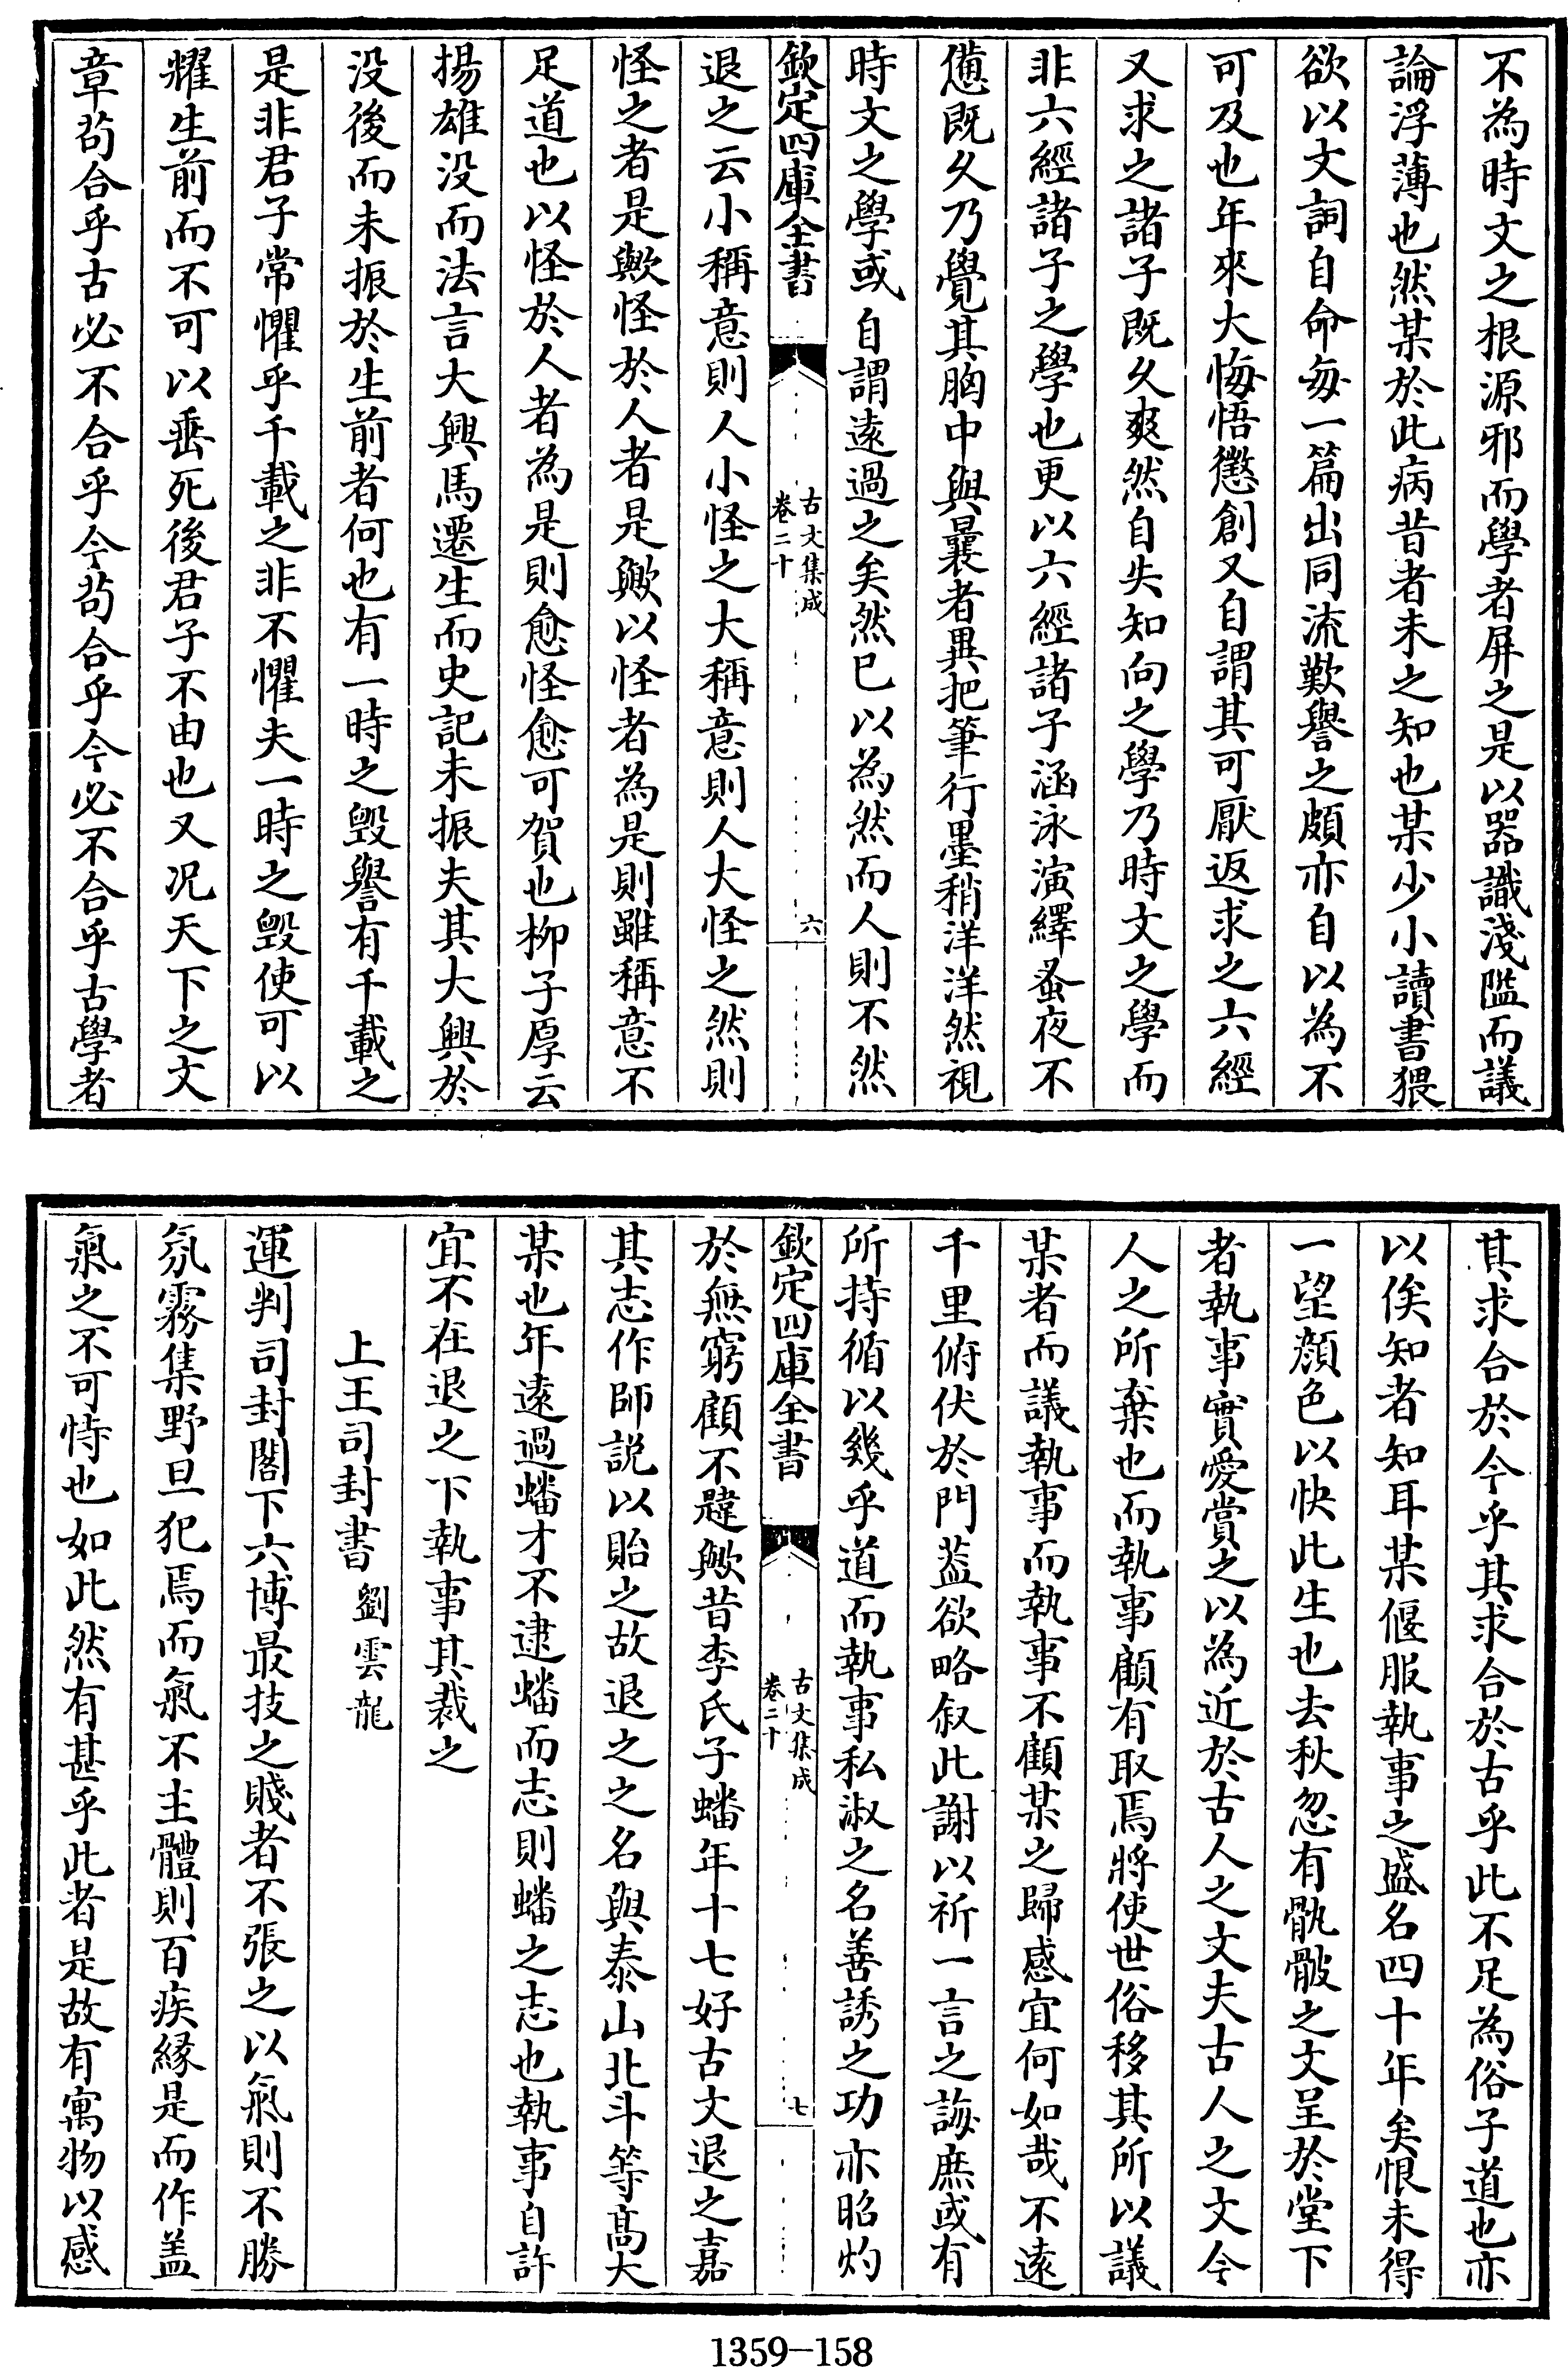 不為時文之根源邪而學者屏之是以器識淺隘而議
論浮薄也然某於此病昔者未之知也某少小讀書猥
欲以文詞自命每一篇出同流歎譽之頗亦自以為不
可及也年來大悔悟懲創又自謂其可厭返求之六經
又求之諸子既久爽然自失知向之學乃時文之學而
非六經諸子之學也更以六經諸子涵泳演繹蚤夜不
憊既久乃覺其胸中與曩者異把筆行墨稍洋洋然視
時文之學或自謂遠過之矣然已以為然而人則不然
欽定四庫全書
古文集成
卷二十
六
退之云小稱意則人小怪之大稱意則人大怪之然則
怪之者是歟怪於人者是歟以怪者為是則雖稱意不
足道也以怪於人者為是則愈怪愈可賀也柳子厚云
揚雄没而法言大興馬遷生而史記未振夫其大興於
没後而未振於生前者何也有一時之毁譽有千載之
是非君子常懼乎千載之非不懼夫一時之毁使可以
耀生前而不可以垂死後君子不由也又况天下之文
章苟合乎古必不合乎今苟合乎今必不合乎古學者
其求合於今乎其求合於古乎此不足為俗子道也亦
以俟知者知耳某偃服執事之盛名四十年矣恨未得
一望顔色以快此生也去秋忽有骩骳之文呈於堂下
者執事實愛賞之以為近於古人之文夫古人之文今
人之所棄也而執事顧有取焉將使世俗移其所以議
某者而議執事而執事不顧某之歸感宜何如哉不遠
千里俯伏於門葢欲略叙此謝以祈一言之誨庶或有
所持循以幾乎道而執事私淑之名善誘之功亦昭灼
欽定四庫全書
古文集成
卷二十
七
於無窮顧不韙歟昔李氏子蟠年十七好古文退之嘉
其志作師説以貽之故退之之名與泰山北斗等髙大
某也年遠過蟠才不逮蟠而志則蟠之志也執事自許
宜不在退之下執事其裁之
上王司封書 劉雲龍
運判司封閣下六博最技之賤者不張之以氣則不勝
氛霧集野旦犯焉而氣不主體則百疾緣是而作盖
氣之不可恃也如此然有甚乎此者是故有寓物以感
1359-158